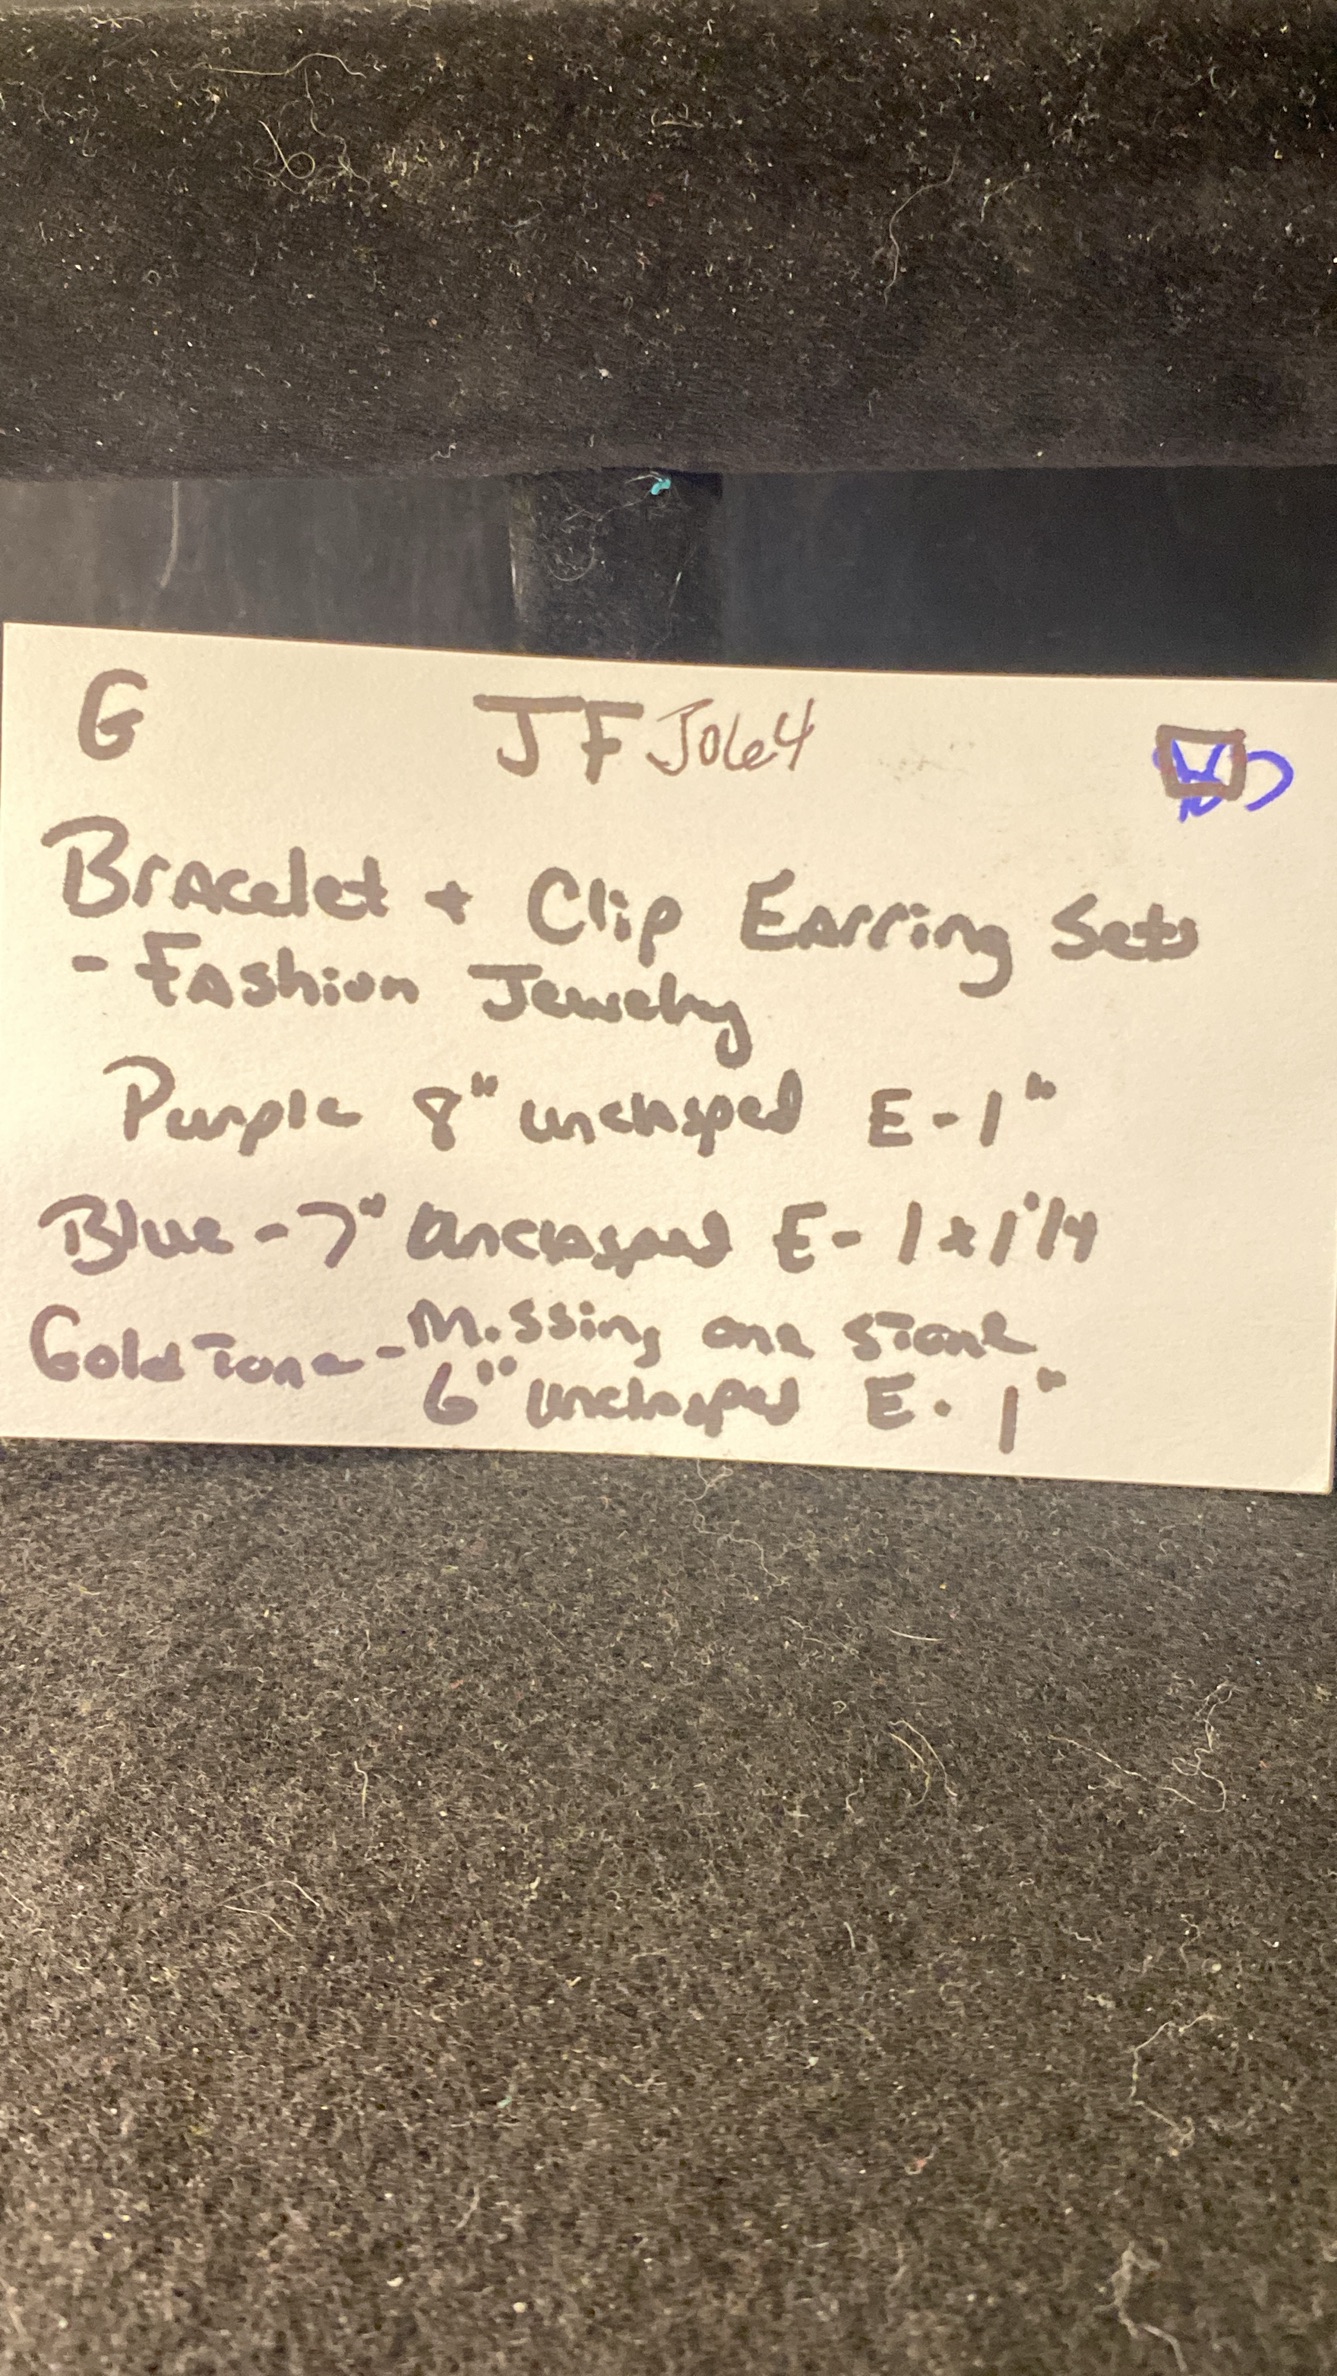 G JF J064
Bracelet + Clip Earring Sets
- Fashion Jewelry
Purple 8" unclasped E-1"
Blue - 7" Unclasped E- 1 x 1"/4
Gold Tone - Missing one stone
6" unclasped E. 1"